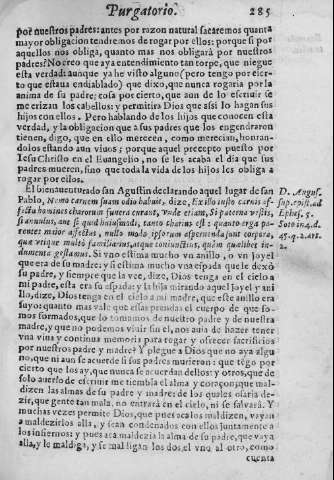 Purgatorio. 285
por nuestros padres: antes por razon natural sacaremos quanta
mayor obligacion tendremos de rogar por ellos: porque si por
aquellos nos obliga, quanto mas nos obligarà por nuestros
padres? No creo que aya entendimiento tan torpe, que niegue
esta verdad: aunque ya he visto alguno (pero tengo por cier-
to que estaua endiablado) que dixo, que nunca rogaria por la
anima de su padre; cosa por cierto, que aun de lo escriuir se
me erizan los cabellos: y permitirà Dios que assi lo hagan sus
hijos con ellos. Pero hablando de los hijos que conocen esta
verdad, y la obligacion a sus padres que los engendraron
tienen, digo, que en ello merecen, como merecian, honran-
dolos estando aun viuos; porque aquel precepto puesto por
Iesu Christo en el Euangelio, no se les acaba el dia que sus
padres mueren, sino que toda la vida de los hijos les obliga a
rogar por ellos.
El bienauenturado san Agustin declarando aquel lugar de san
Pablo, Nemo carnem suam odio habuit, dize, Ex illo iusto carnis af-
fectu homines charorum funera curant, vnde etiam, Si paterna vestis,
si annulus, aut si quid huiusmodi, tanto charius est: quanto erga pa-
rentes maior affectus, nullo modo ipsorum aspernenda sunt corpora,
quæ vtique multò familiarius, atque coniunctius, quàm quælibet in-
dumenta gestamus. Si vno estima mucho vn anillo, o vn joyel
que era de su madre; y si estima mucho vna espada que le dexò
su padre, y siempre que la vee, dize, Dios tenga en el cielo a
mi padre, esta era su espada: y la hija mirando aquel joyel y ani
llo, dize, Dios tenga en el cielo a mi madre, que este anillo era
suyo: quanto mas vale que essas prendas el cuerpo de que so-
mos formados, que lo tomamos de nuestro padre y de nuestra
madre, y que no podemos viuir sin el, nos auia de hazer tener
vna viua y continua memoria para rogar y ofrecer sacrificios
por nuestros padre y madre? Y plegue a Dios que no aya algu
no, que ni aun se acuerde si sus padres murieron: que tégo por
cierto que los ay, que nunca se acuerdan dellos: y otros, que de
solo auerlo de escriuir me tiembla el alma y coraçon, que mal-
dizen las almas de su padre y madre: de los quales osaria de-
zir, que gente tan mala, no entrarà en el cielo, ni se saluarà. Y
muchas vezes permite Dios, que pues acà los maldizen, vayan
a maldezirlos allà, y sean condenados con ellos juntamente a
los infiernos; y pues acà maldezia la alma de su padre, que vaya
allà, y le maldiga, y se maldigan los dos, el vno al otro, como
cuenta
D. Augus.
sup. epist. ad
Ephes. 5.
Soto in 4. d.
45. q. 2. art.
2.